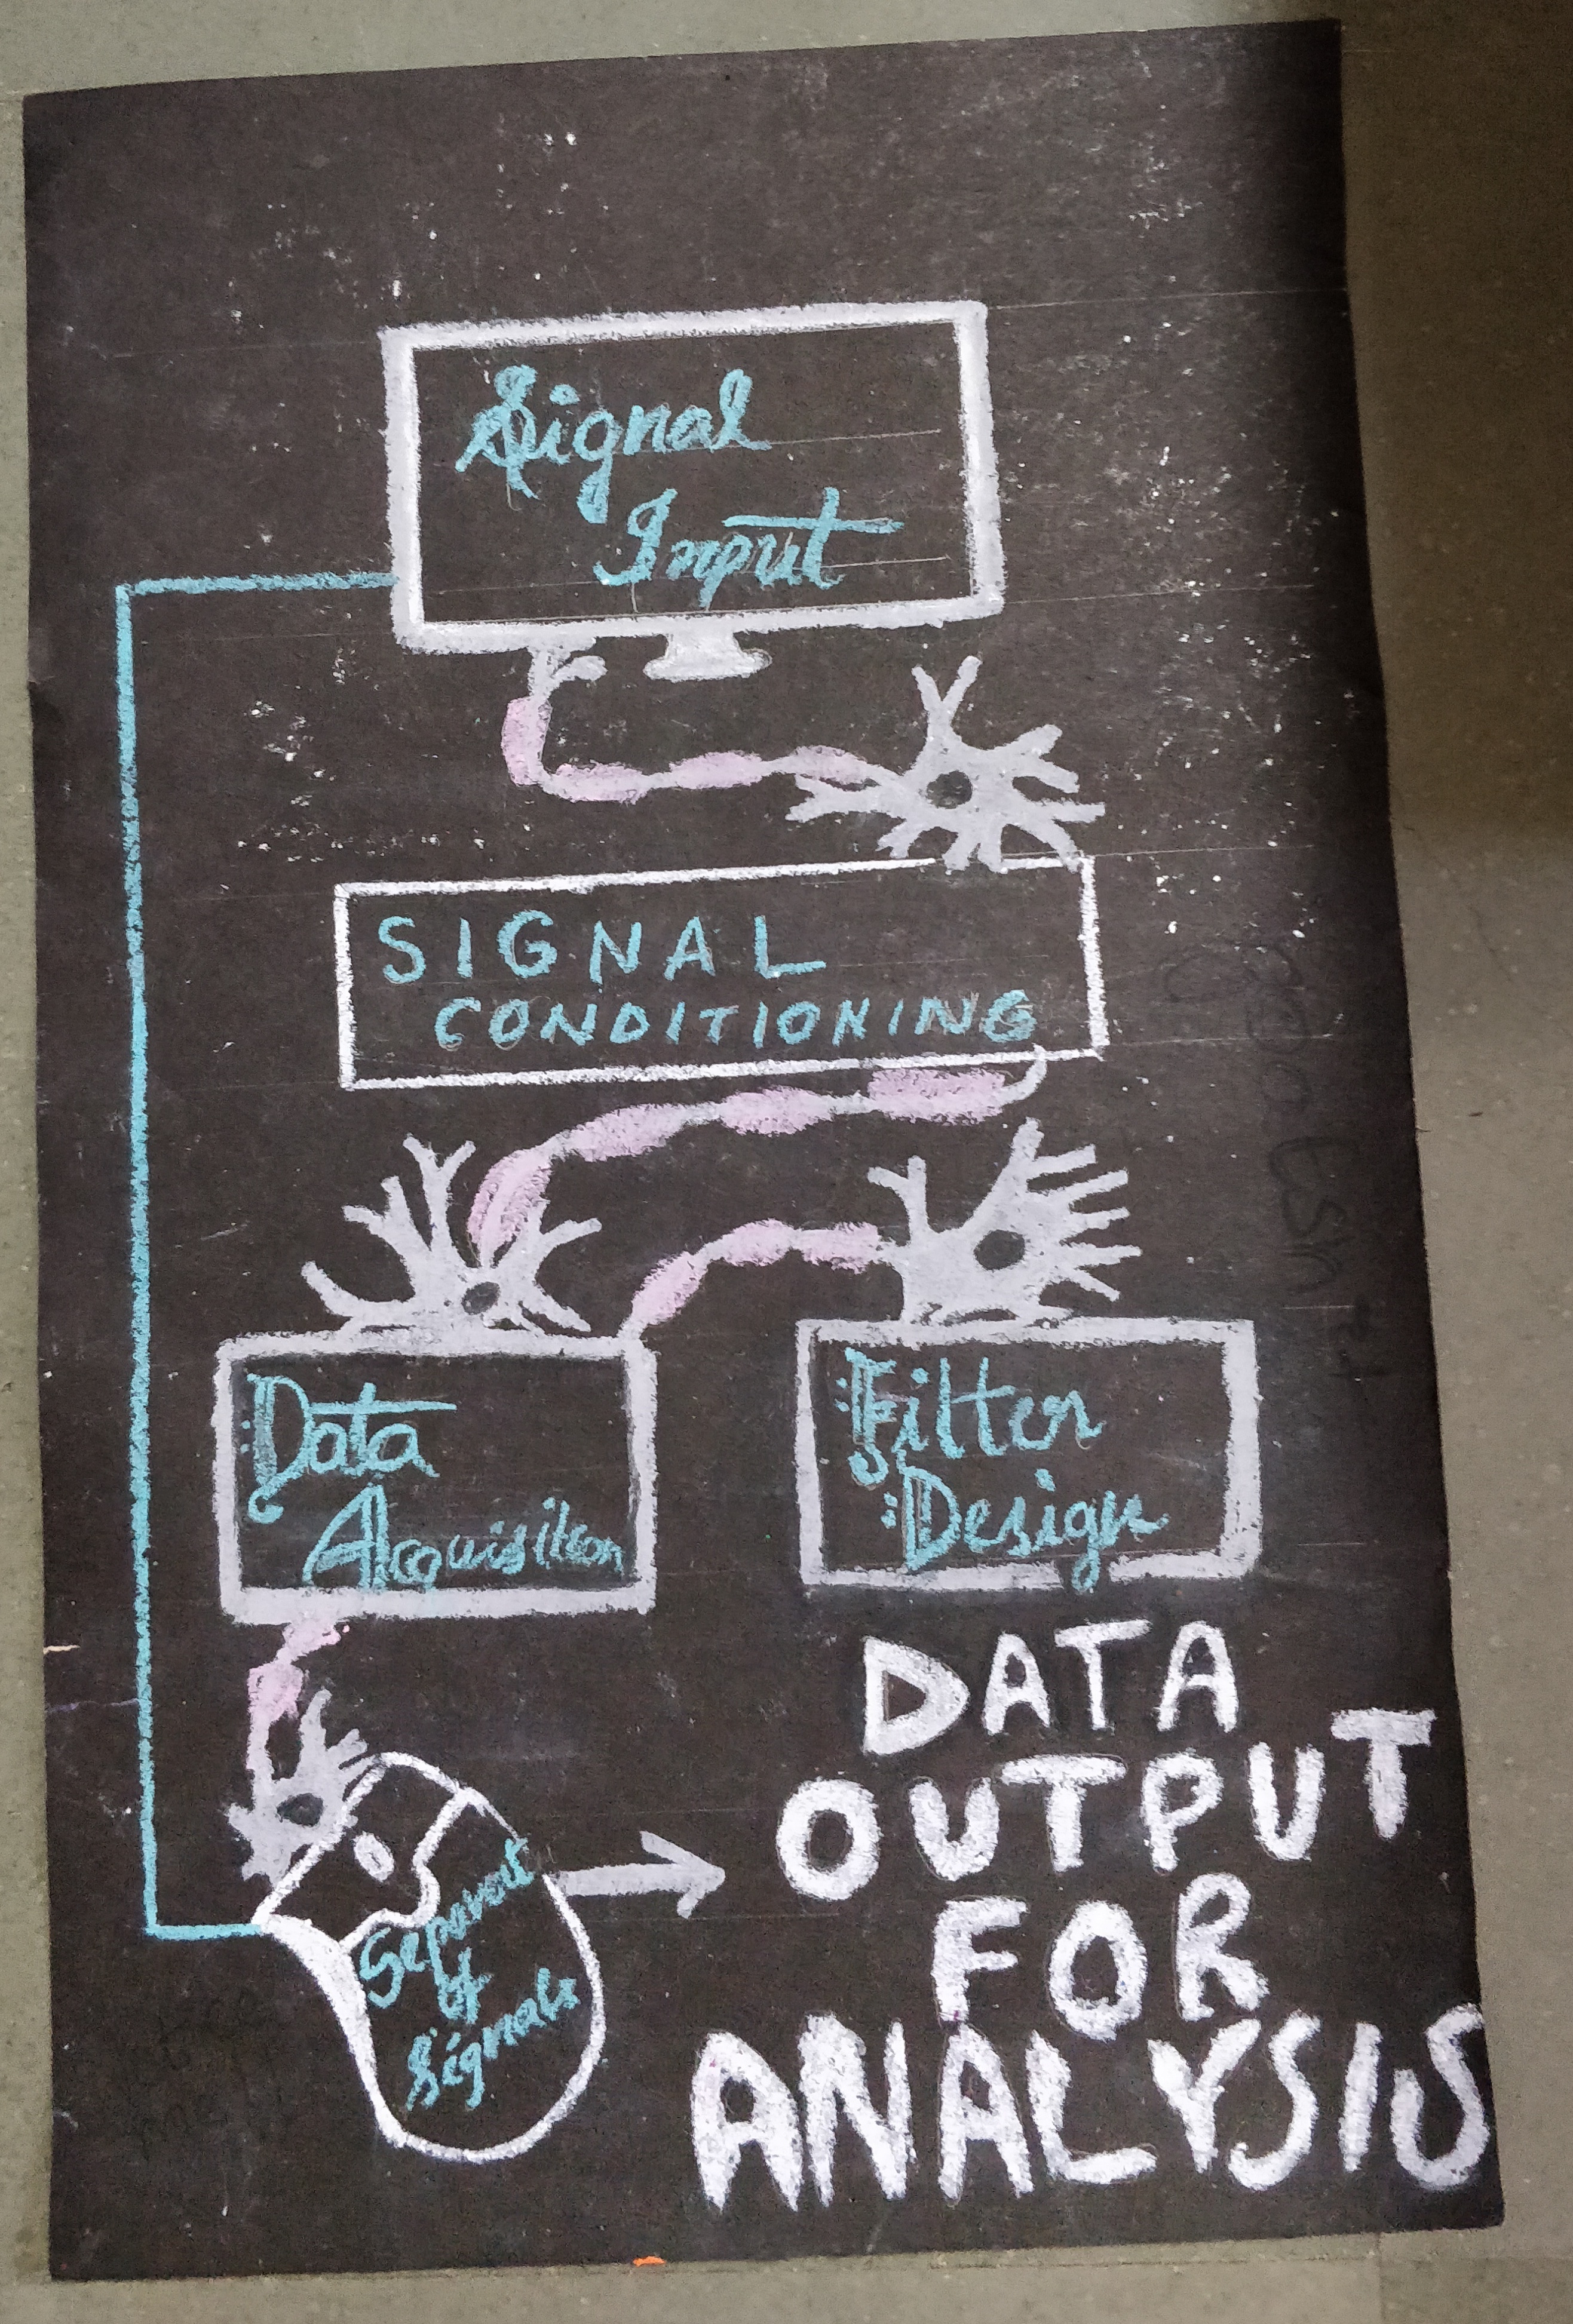 Signal
Input
SIGNAL
CONDITIONING
Data
Acquisition
Filter
Design
of
Signals
DATA
OUTPUT
FOR
ANALYSIS